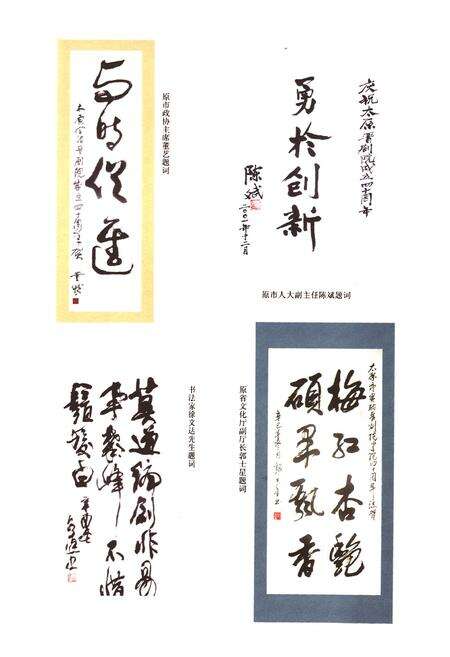 与时俱进
原市政协主席董艺题词
庆祝太原晋剧院成立四十周年
勇於创新
陈斌
二〇〇一年十二月
原市人大副主任陈斌题词
莫道编剧非易
事攀峰不惜
鬓发白
书法家徐文达先生题词
梅红杏艳
硕果飘香
原省文化厅副厅长郭士星题词